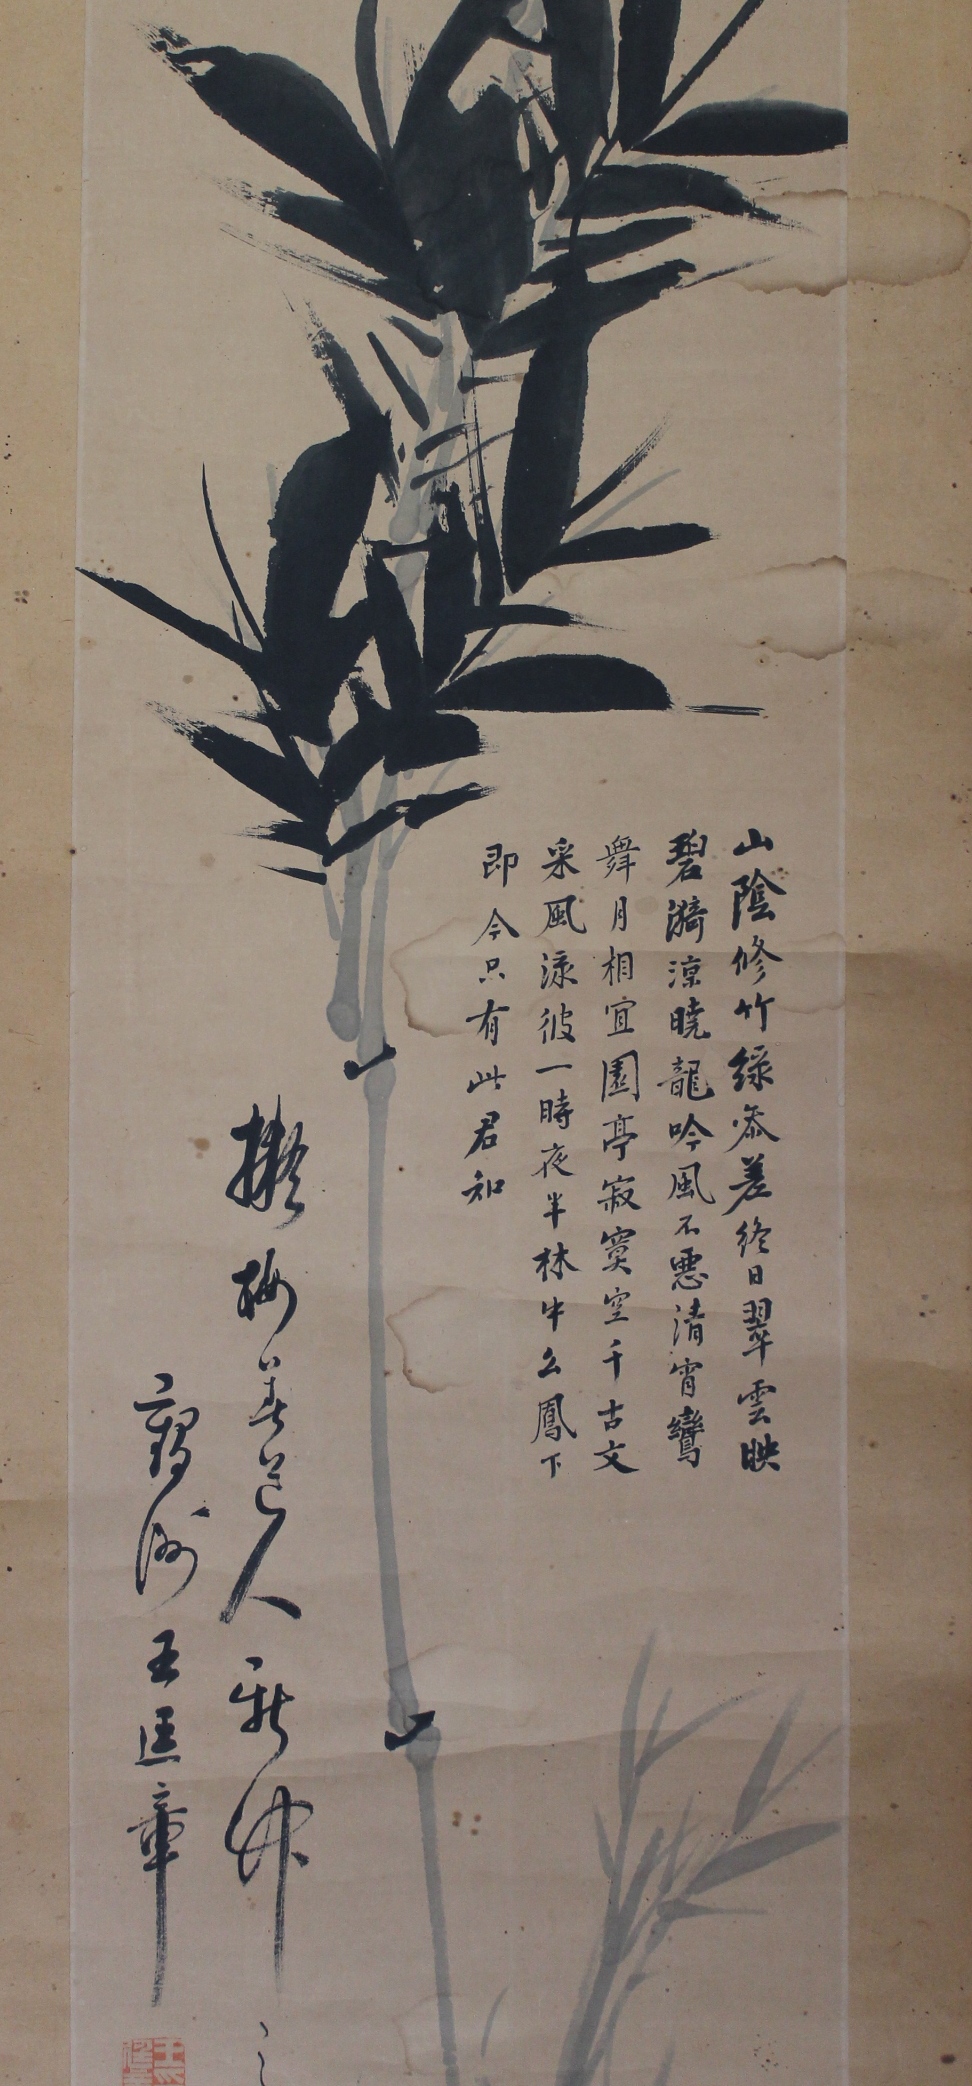 山陰修竹緑叅差終日翠雲映
碧漪涼曉龍吟風不悪清宵鸞
舞月相宜園亭寂寞空千古文
采風流彼一時夜半林中么鳳下
即今只有此君知
擬梅道人
王匡章